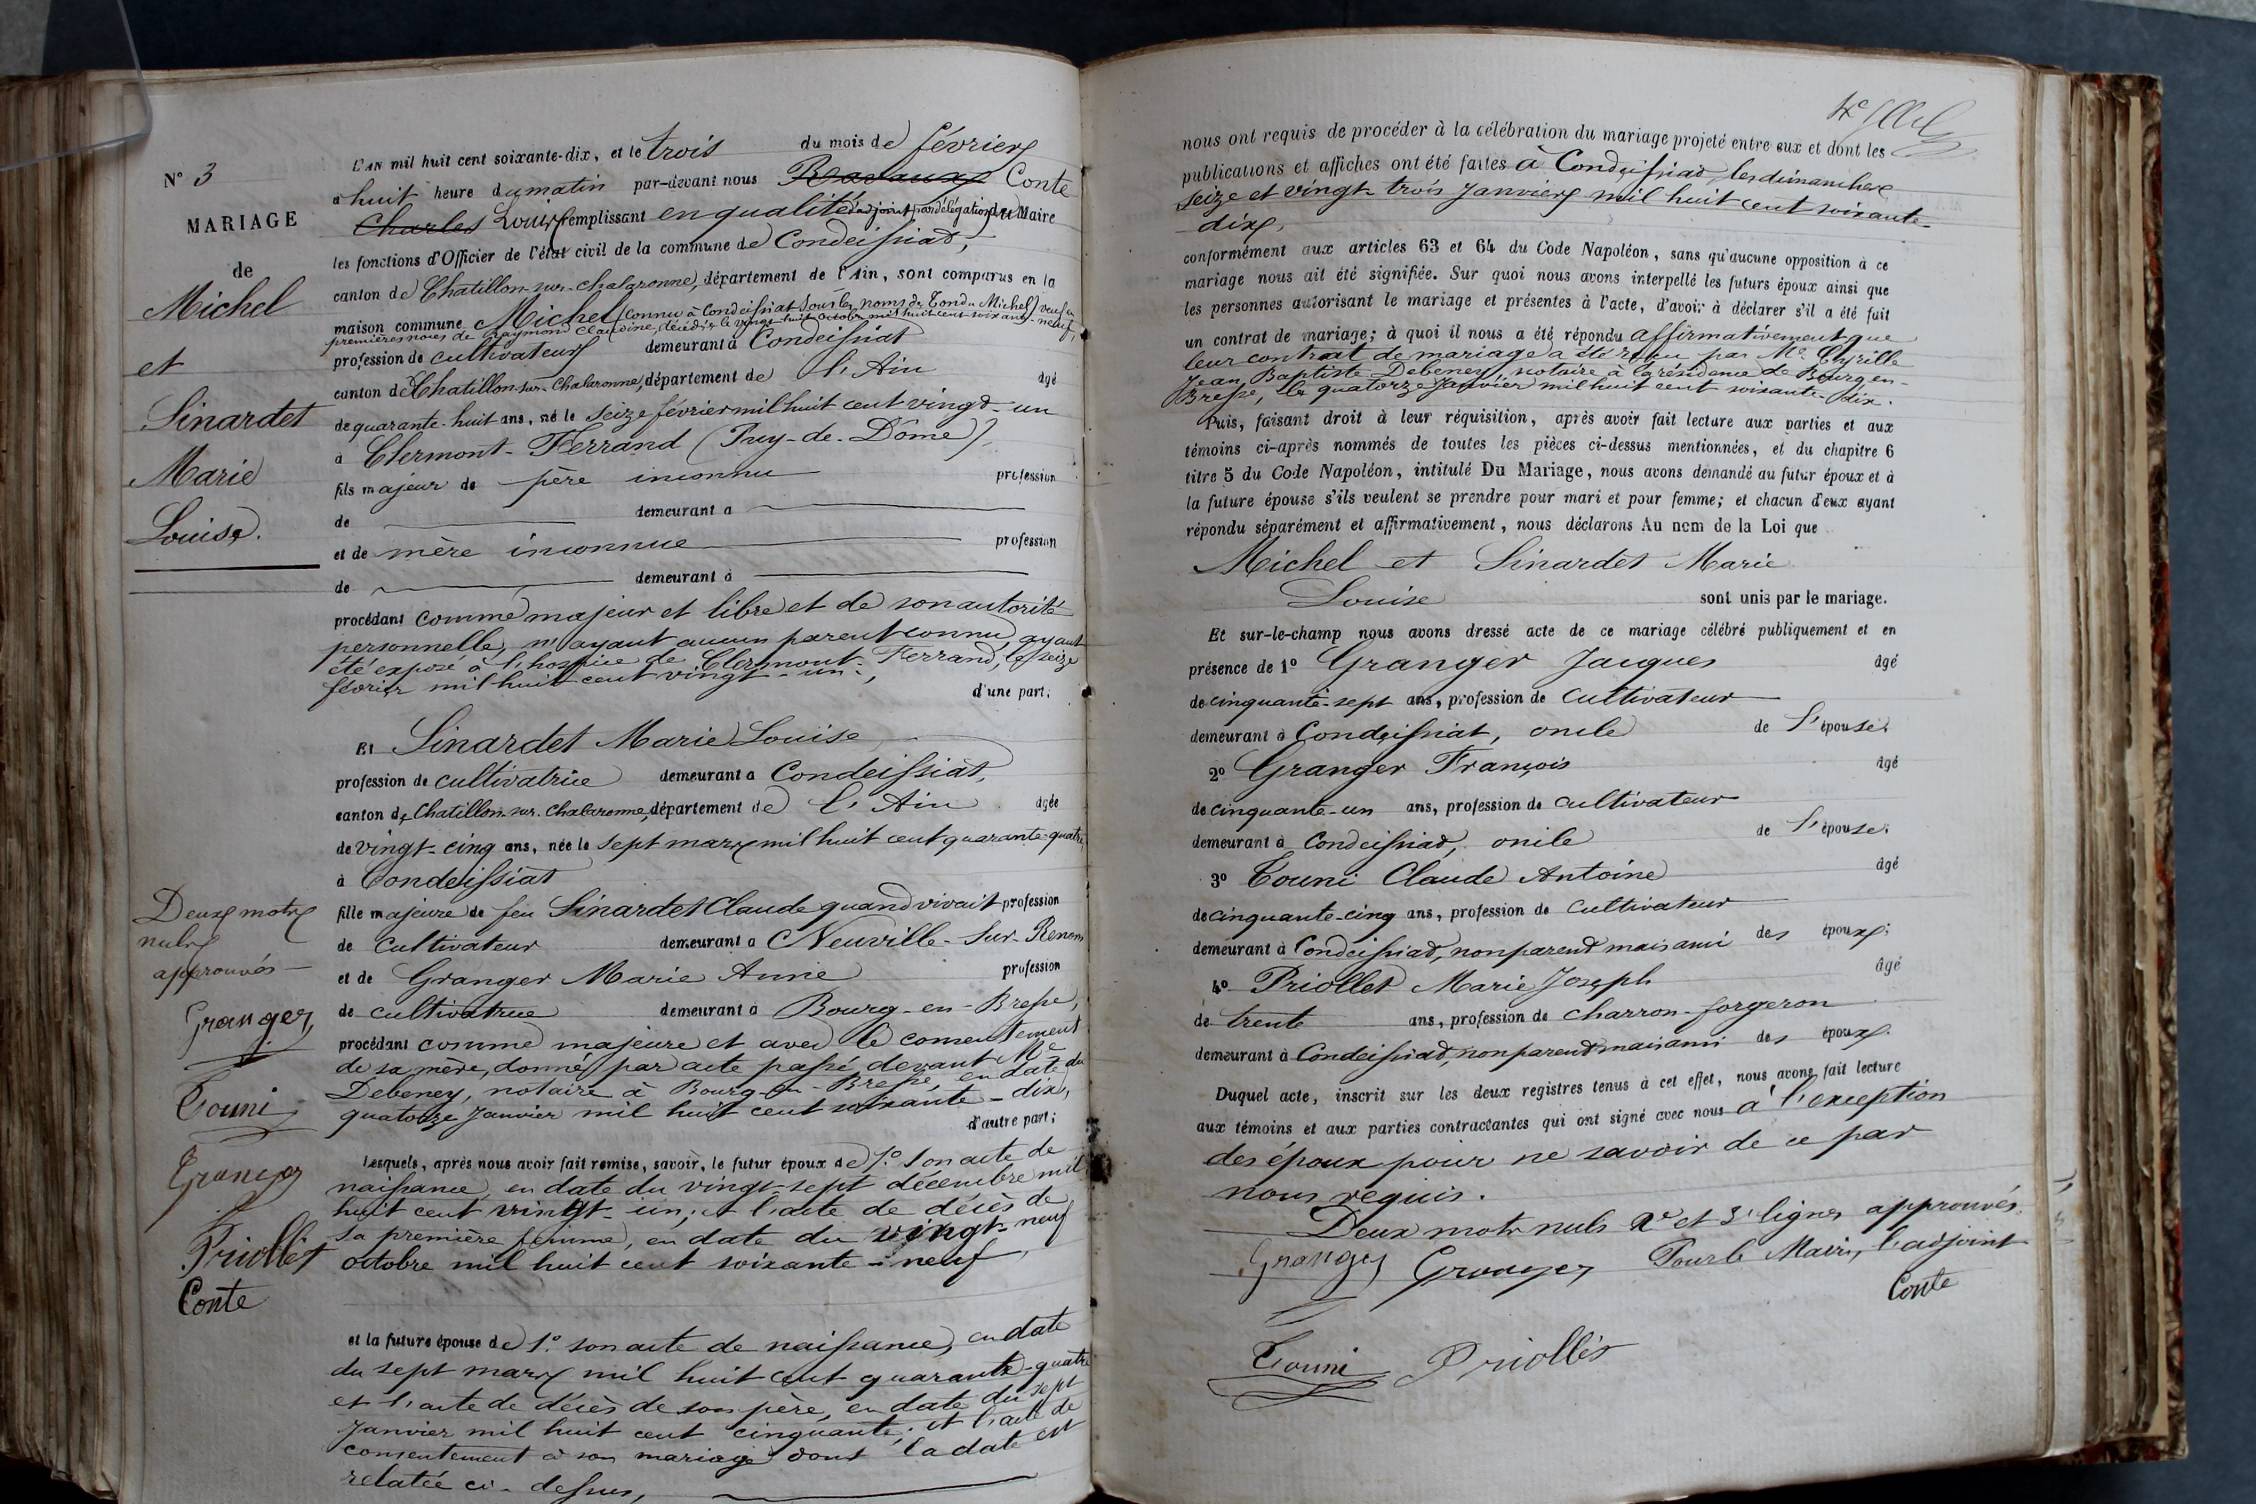 N° 3
MARIAGE
de
Michel
et
Sinardet
Marie
Louise.
L'AN mil huit cent soixante-dix, et le trois du mois de février
à huit heure du matin par-devant nous Conte
Charles Louis remplissant en qualité d'adjoint par délégation du Maire
les fonctions d'Officier de l'état civil de la commune de Condeissiat,
canton de Chatillon-sur-Chalaronne, département de l'Ain, sont comparus en la
maison commune Michel (connu à Condeissiat sous les noms de Tondu Michel) veuf en
premières noces de Raymond Claudine, décédée le vingt-huit octobre mil huit cent soixante-neuf,
profession de cultivateur demeurant à Condeissiat
canton de Chatillon-sur-Chalaronne, département de l'Ain âgé
de quarante-huit ans, né le seize février mil huit cent vingt-un
à Clermont-Ferrand (Puy-de-Dôme),
fils majeur de père inconnu profession
de demeurant à
et de mère inconnue profession
de demeurant à
procédant comme majeur et libre et de son autorité
personnelle, n'ayant aucun parent connu, ayant
été exposé à l'hospice de Clermont-Ferrand, le seize
février mil huit cent vingt-un,
d'une part;
Et Sinardet Marie Louise
profession de cultivatrice demeurant à Condeissiat,
canton de Chatillon-sur-Chalaronne, département de l'Ain âgée
de vingt-cinq ans, née le sept mars mil huit cent quarante-quatre
à Condeissiat
fille majeure de feu Sinardet Claude quand vivait profession
de cultivateur demeurant à Neuville-sur-Renom
et de Granger Marie Anne profession
de cultivatrice demeurant à Bourg-en-Bresse,
procédant comme majeure et avec le consentement
de sa mère, donné par acte passé devant Me
Debeney, notaire à Bourg-en-Bresse, en date du
quatorze janvier mil huit cent soixante-dix,
d'autre part;
Lesquels, après nous avoir fait remise, savoir, le futur époux de 1° son acte de
naissance, en date du vingt-sept décembre mil
huit cent vingt-un; et l'acte de décès de
sa première femme, en date du vingt-neuf
octobre mil huit cent soixante-neuf,
et la future épouse de 1° son acte de naissance, en date
du sept mars mil huit cent quarante-quatre
et l'acte de décès de son père, en date du sept
janvier mil huit cent cinquante; et l'acte de
consentement à son mariage dont la date est
relatée ci-dessus,
Deux mots
nuls
approuvés
Granger
Touni
Granger
Priollet
Conte
nous ont requis de procéder à la célébration du mariage projeté entre eux et dont les
publications et affiches ont été faites à Condeissiat, les dimanches
seize et vingt-trois janvier mil huit cent soixante-
dix,
conformément aux articles 63 et 64 du Code Napoléon, sans qu'aucune opposition à ce
mariage nous ait été signifiée. Sur quoi nous avons interpellé les futurs époux ainsi que
les personnes autorisant le mariage et présentes à l'acte, d'avoir à déclarer s'il a été fait
un contrat de mariage; à quoi il nous a été répondu affirmativement que
leur contrat de mariage a été reçu par Me Cyrille
Jean Baptiste Debeney, notaire à la résidence de Bourg-en-
Bresse, le quatorze janvier mil huit cent soixante-dix.
Puis, faisant droit à leur réquisition, après avoir fait lecture aux parties et aux
témoins ci-après nommés de toutes les pièces ci-dessus mentionnées, et du chapitre 6
titre 5 du Code Napoléon, intitulé Du Mariage, nous avons demandé au futur époux et à
la future épouse s'ils veulent se prendre pour mari et pour femme; et chacun d'eux ayant
répondu séparément et affirmativement, nous déclarons Au nom de la Loi que
Michel et Sinardet Marie
Louise sont unis par le mariage.
Et sur-le-champ nous avons dressé acte de ce mariage célébré publiquement et en
présence de 1° Granger Jacques âgé
de cinquante-sept ans, profession de cultivateur
demeurant à Condeissiat, oncle de l'épouse;
2° Granger François âgé
de cinquante-un ans, profession de cultivateur
demeurant à Condeissiat, oncle de l'épouse;
3° Touni Claude Antoine âgé
de cinquante-cinq ans, profession de cultivateur
demeurant à Condeissiat, non parent mais ami des époux;
4° Priollet Marie Joseph âgé
de trente ans, profession de charron-forgeron
demeurant à Condeissiat, non parent mais ami des époux.
Duquel acte, inscrit sur les deux registres tenus à cet effet, nous avons fait lecture
aux témoins et aux parties contractantes qui ont signé avec nous à l'exception
des époux pour ne savoir de ce par
nous requis.
Deux mots nuls 2e et 3e lignes approuvés.
Granger Granger Pour le Maire, l'adjoint
Conte
Touni Priollet